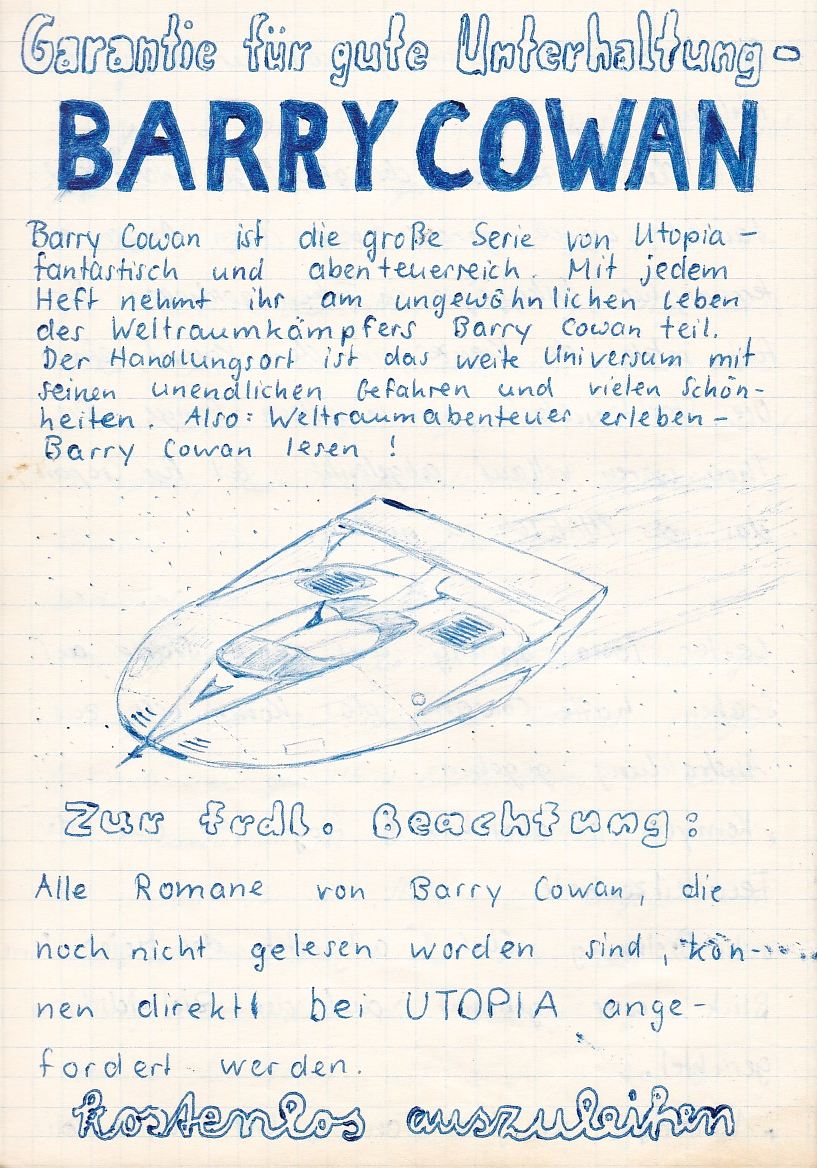 Garantie für gute Unterhaltung-
BARRY COWAN
Barry Cowan ist die große Serie von Utopia -
fantastisch und abenteuerreich. Mit jedem
Heft nehmt ihr am ungewöhnlichen Leben
des Weltraumkämpfers Barry Cowan teil.
Der Handlungsort ist das weite Universum mit
seinen unendlichen Gefahren und vielen Schön-
heiten. Also: Weltraumabenteuer erleben -
Barry Cowan lesen !
Zur frdl. Beachtung:
Alle Romane von Barry Cowan, die
noch nicht gelesen worden sind, kön-
nen direkt bei UTOPIA ange-
fordert werden.
kostenlos auszuleihen